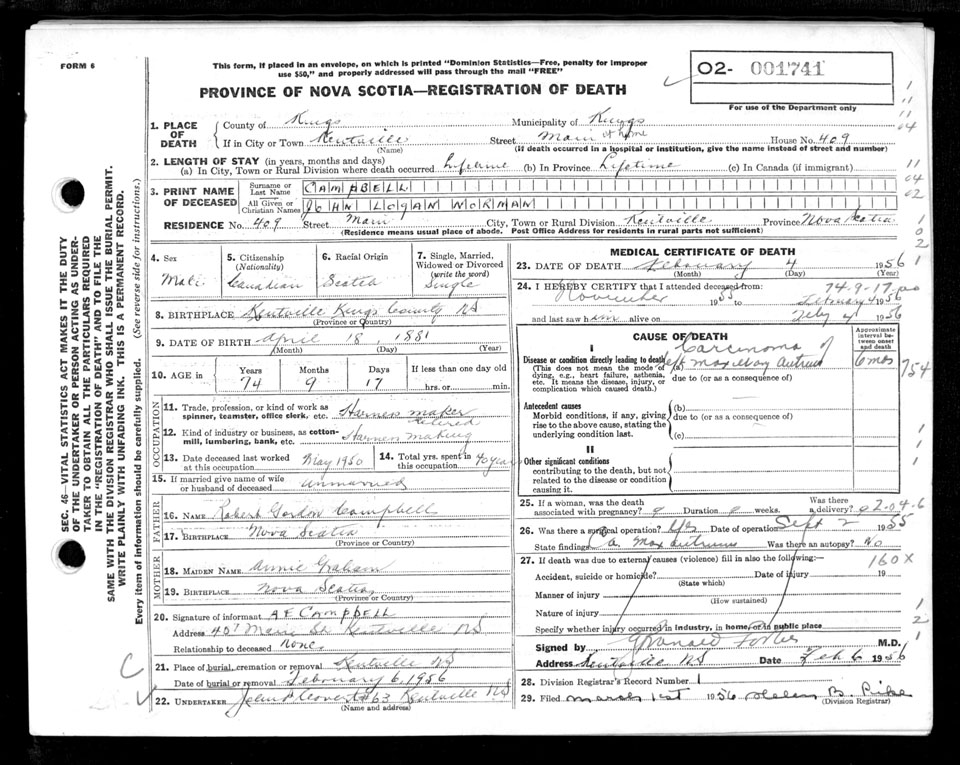 FORM 6
This form, if placed in an envelope, on which is printed "Dominion Statistics—Free, penalty for improper
use $50," and properly addressed will pass through the mail "FREE"
O2- 001741
For use of the Department only
PROVINCE OF NOVA SCOTIA—REGISTRATION OF DEATH
SEC. 46—VITAL STATISTICS ACT MAKES IT THE DUTY
OF THE UNDERTAKER OR PERSON ACTING AS UNDER-
TAKER TO OBTAIN ALL THE PARTICULARS REQUIRED
IN THE "REGISTRATION OF DEATH" AND TO FILE THE
SAME WITH THE DIVISION REGISTRAR WHO SHALL ISSUE THE BURIAL PERMIT.
WRITE PLAINLY WITH UNFADING INK. THIS IS A PERMANENT RECORD.
Every item of information should be carefully supplied. (See reverse side for instructions.)
1. PLACE OF DEATH
County of Kings Municipality of Kings
If in City or Town Kentville Street Main at home House No. 409
(Name) (If death occurred in a hospital or institution, give the name instead of street and number)
2. LENGTH OF STAY (in years, months and days)
(a) In City, Town or Rural Division where death occurred Lifetime (b) In Province Lifetime (c) In Canada (if immigrant)
3. PRINT NAME OF DECEASED
Surname or Last Name CAMPBELL
All Given or Christian Names JOHN LOGAN NORMAN
RESIDENCE No. 409 Street Main City, Town or Rural Division Kentville Province Nova Scotia
(Residence means usual place of abode. Post Office Address for residents in rural parts not sufficient)
4. Sex
Male
5. Citizenship (Nationality)
Canadian
6. Racial Origin
Scotch
7. Single, Married, Widowed or Divorced (write the word)
Single
8. BIRTHPLACE Kentville Kings County NS
(Province or Country)
9. DATE OF BIRTH April 18, 1881
(Month) (Day) (Year)
10. AGE in Years Months Days If less than one day old
74 9 17 hrs. or min.
OCCUPATION
11. Trade, profession, or kind of work as spinner, teamster, office clerk, etc. Harness maker retired
12. Kind of industry or business, as cotton-mill, lumbering, bank, etc. Harness making
13. Date deceased last worked at this occupation May 1950
14. Total yrs. spent in this occupation 40 years
15. If married give name of wife or husband of deceased Unmarried
FATHER
16. NAME Robert Gordon Campbell
17. BIRTHPLACE Nova Scotia
(Province or Country)
MOTHER
18. MAIDEN NAME Annie Graham
19. BIRTHPLACE Nova Scotia
(Province or Country)
20. Signature of informant A F CAMPBELL
Address Main St Kentville NS
Relationship to deceased None
21. Place of burial, cremation or removal Kentville NS
Date of burial or removal February 6, 1956
22. UNDERTAKER Kentville NS
(Name and address)
MEDICAL CERTIFICATE OF DEATH
23. DATE OF DEATH February 4 1956
(Month) (Day) (Year)
74-9-17
24. I HEREBY CERTIFY that I attended deceased from:
November 1955 to February 4 1956
and last saw him alive on Feby 4 1956
CAUSE OF DEATH
Approximate interval between onset and death
I
Disease or condition directly leading to death
(This does not mean the mode of dying, e.g., heart failure, asthenia, etc. It means the disease, injury, or complication which caused death.)
(a) Carcinoma of left maxillary antrum 6 mos
due to (or as a consequence of)
Antecedent causes
Morbid conditions, if any, giving rise to the above cause, stating the underlying condition last.
(b)
due to (or as a consequence of)
(c)
II
Other significant conditions
contributing to the death, but not related to the disease or condition causing it.
25. If a woman, was the death associated with pregnancy? Duration weeks. Was there a delivery?
26. Was there a surgical operation? Yes Date of operation Sept 2 1955
State findings Ca Max antrum Was there an autopsy? No
27. If death was due to external causes (violence) fill in also the following:—
160X
Accident, suicide or homicide? Date of injury 19
(State which)
Manner of injury
(How sustained)
Nature of injury
Specify whether injury occurred in industry, in home, or in public place
Signed by M.D.
Address Kentville NS Date Feb 6 1956
28. Division Registrar's Record Number 1
29. Filed March 1st 1956 Helen B. Pike
(Division Registrar)